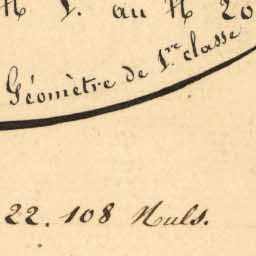 N 1. au N 20
Géomètre de 1re classe
22. 108 Nuls.